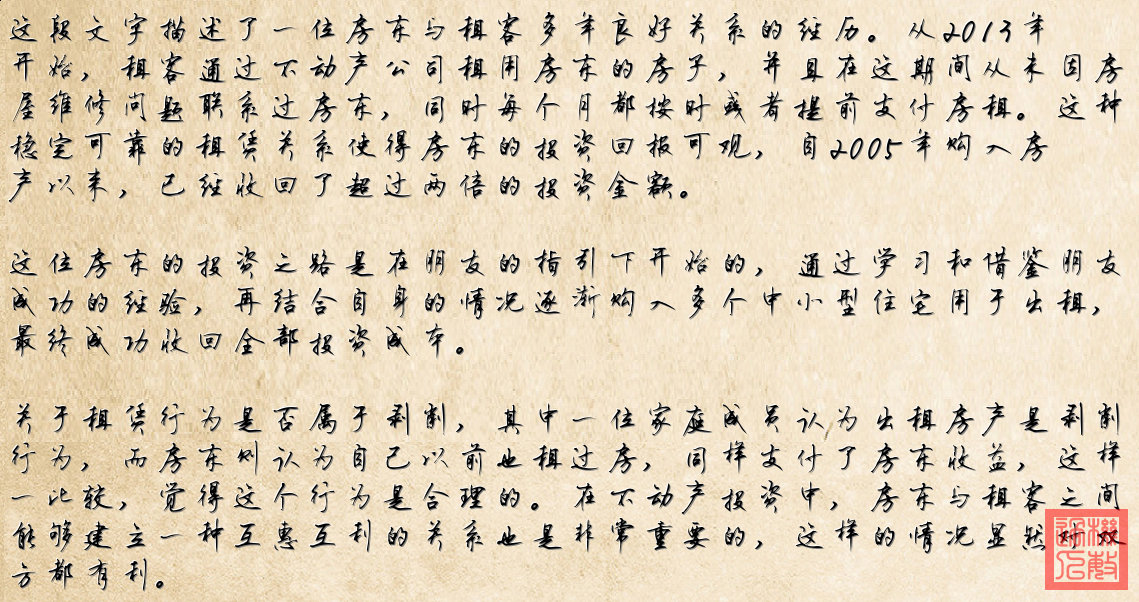 这段文字描述了一位房东与租客多年良好关系的经历。从2013年
开始，租客通过不动产公司租用房东的房子，并且在这期间从未因房
屋维修问题联系过房东，同时每个月都按时或者提前支付房租。这种
稳定可靠的租赁关系使得房东的投资回报可观，自2005年购入房
产以来，已经收回了超过两倍的投资金额。
这位房东的投资之路是在朋友的指引下开始的，通过学习和借鉴朋友
成功的经验，再结合自身的情况逐渐购入多个中小型住宅用于出租，
最终成功收回全部投资成本。
关于租赁行为是否属于剥削，其中一位家庭成员认为出租房产是剥削
行为，而房东则认为自己以前也租过房，同样支付了房东收益，这样
一比较，觉得这个行为是合理的。在不动产投资中，房东与租客之间
能够建立一种互惠互利的关系也是非常重要的，这样的情况显然对双
方都有利。